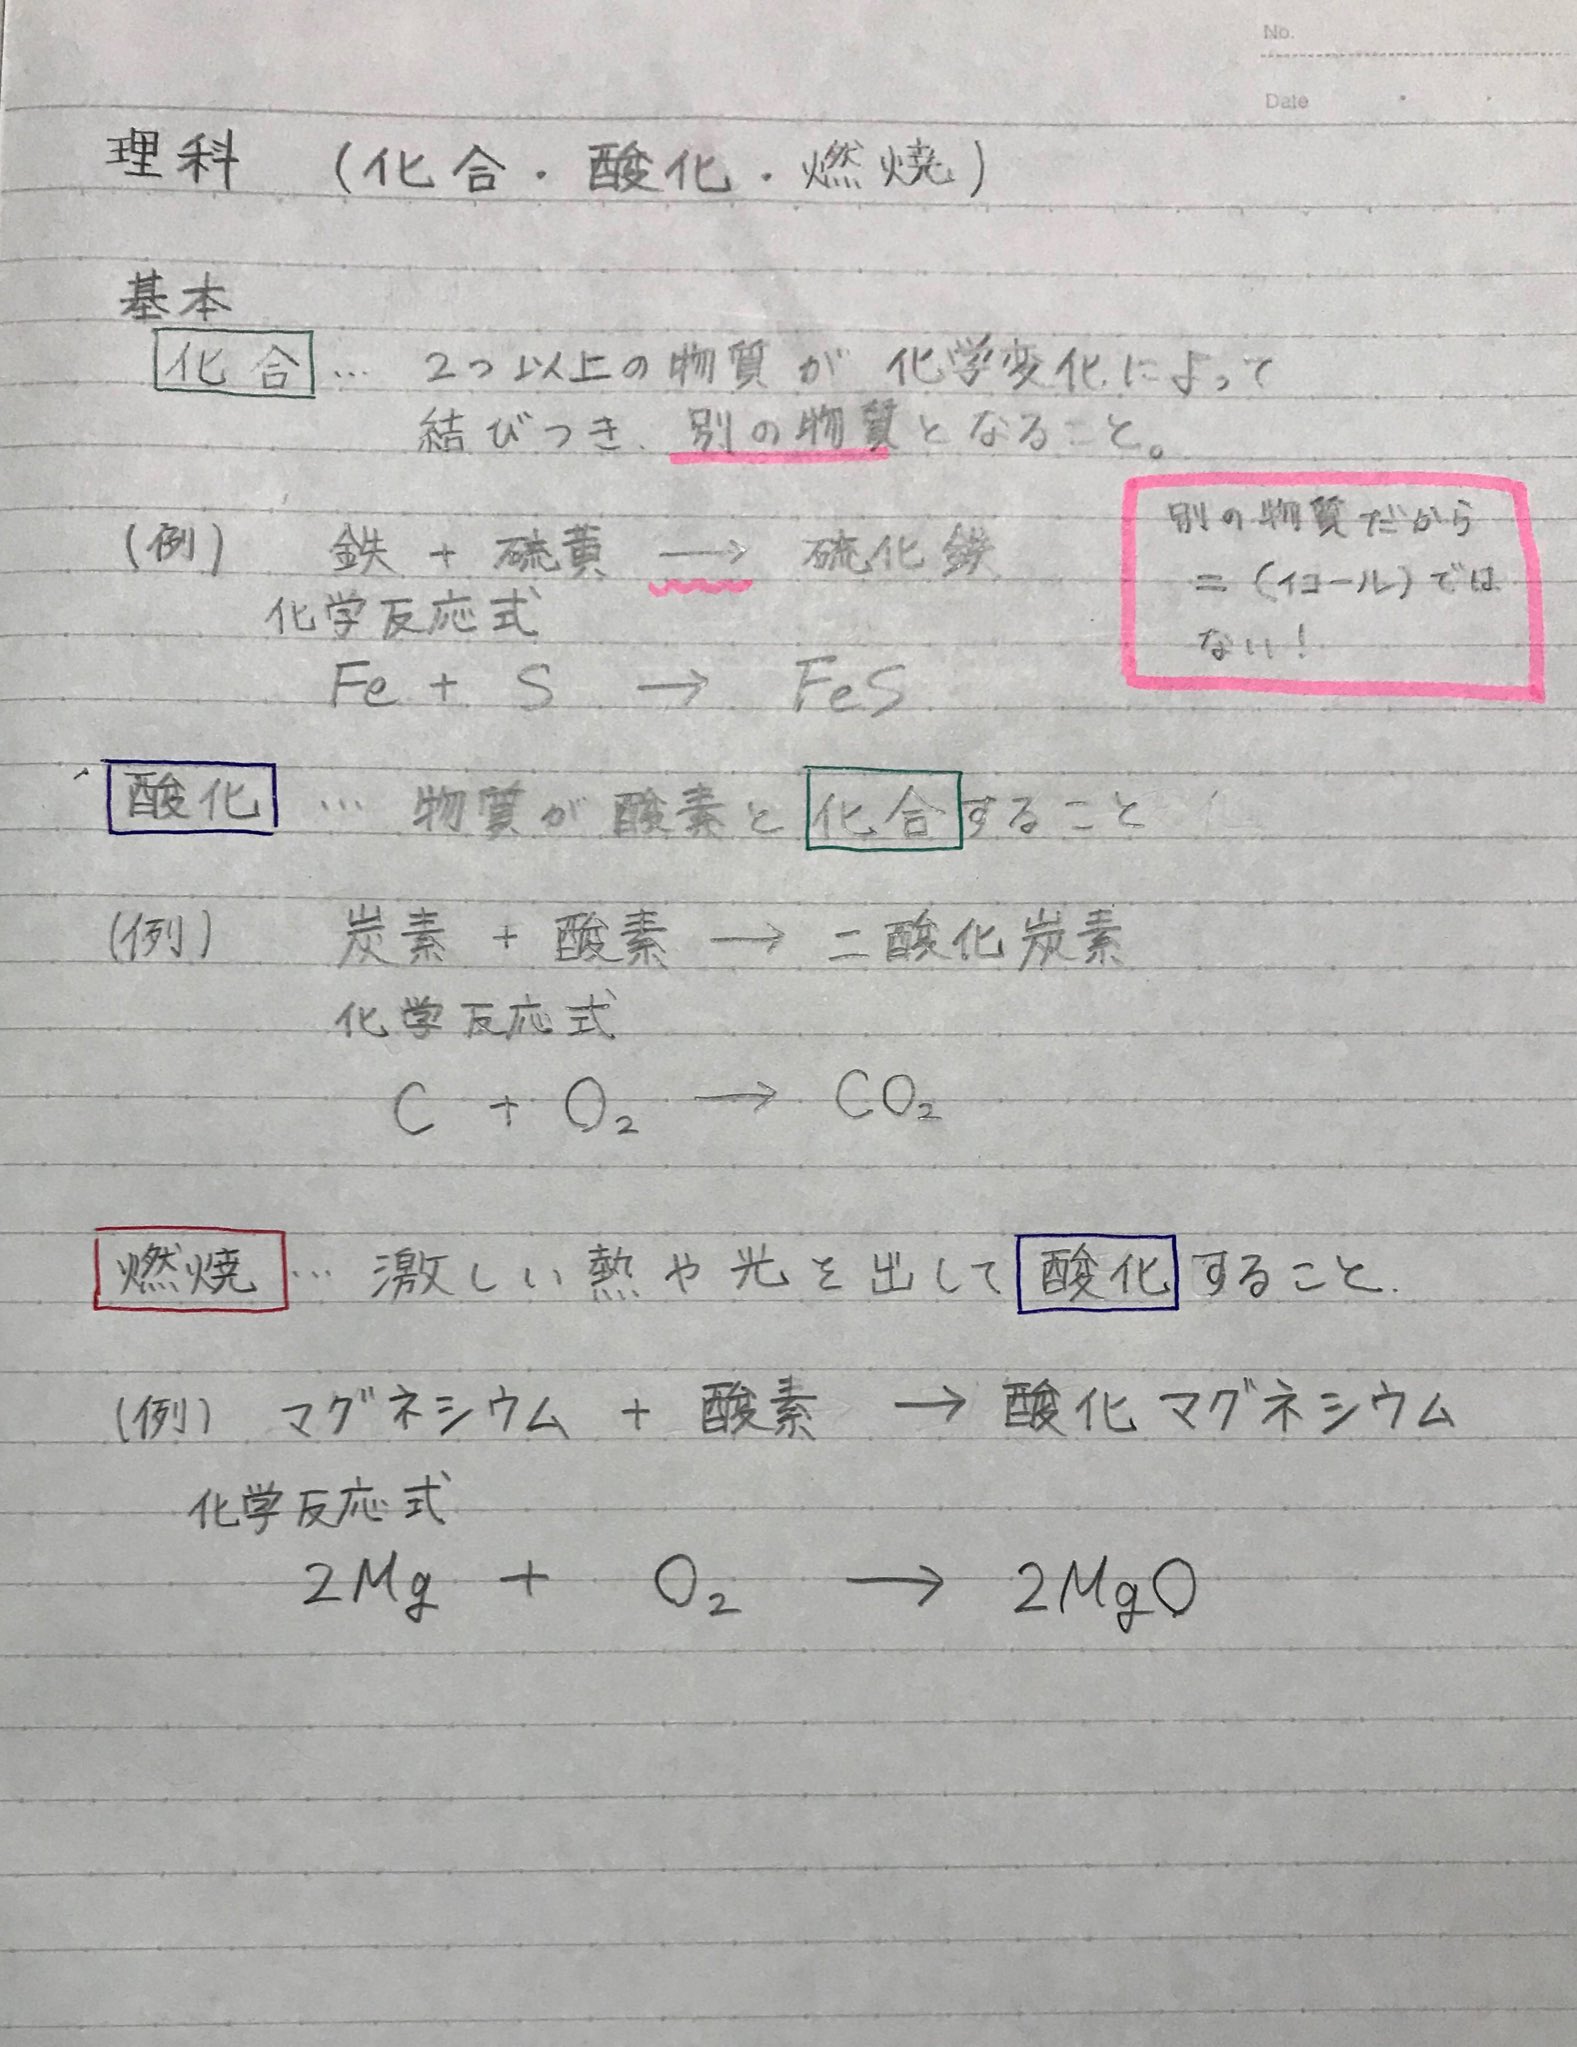 No.
Date
理科 (化合・酸化・燃焼)
基本
化合… 2つ以上の物質が化学変化によって
結びつき、別の物質となること。
(例) 鉄 + 硫黄 → 硫化鉄
別の物質だから
=(イコール)では
ない!
化学反応式
Fe + S → FeS
酸化 … 物質が酸素と化合すること
(例) 炭素 + 酸素 → 二酸化炭素
化学反応式
C + O₂ → CO₂
燃焼… 激しい熱や光を出して酸化すること.
(例) マグネシウム + 酸素 → 酸化マグネシウム
化学反応式
2Mg + O₂ → 2MgO